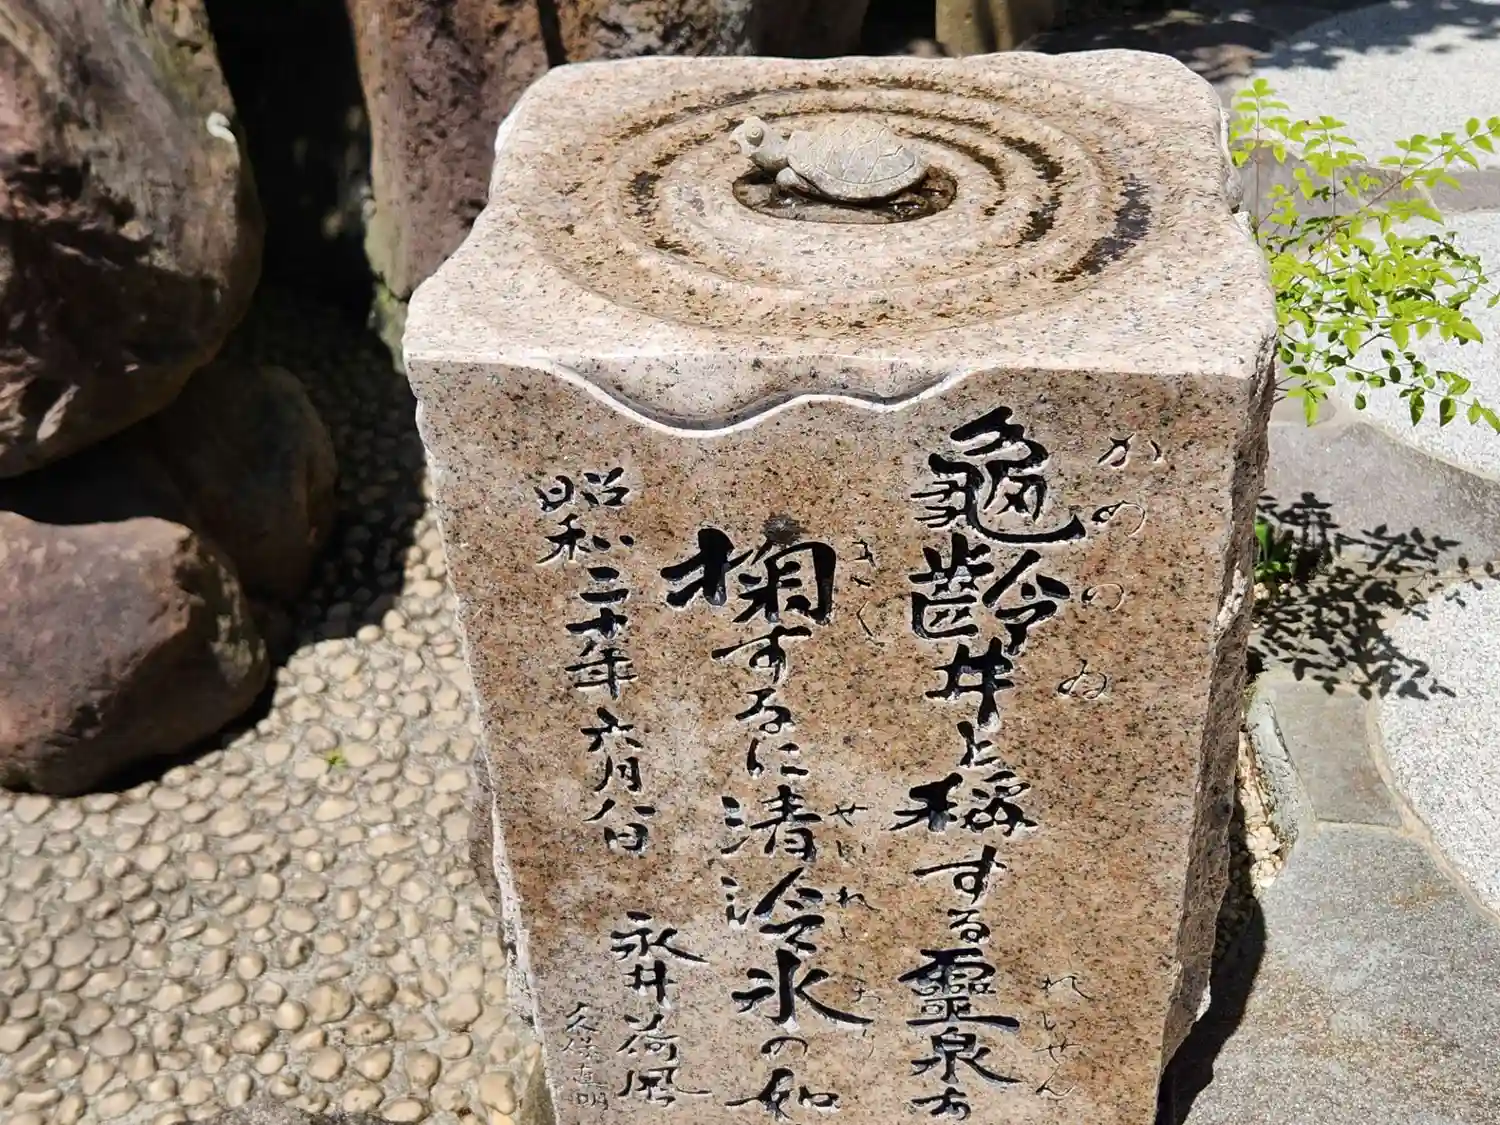 かめのゐ
龜齡井と稱する靈泉あ
れいせん
きく
掬するに清冷氷の如
せいれいこおり
昭和二十年六月八日
永井荷風
久保直明